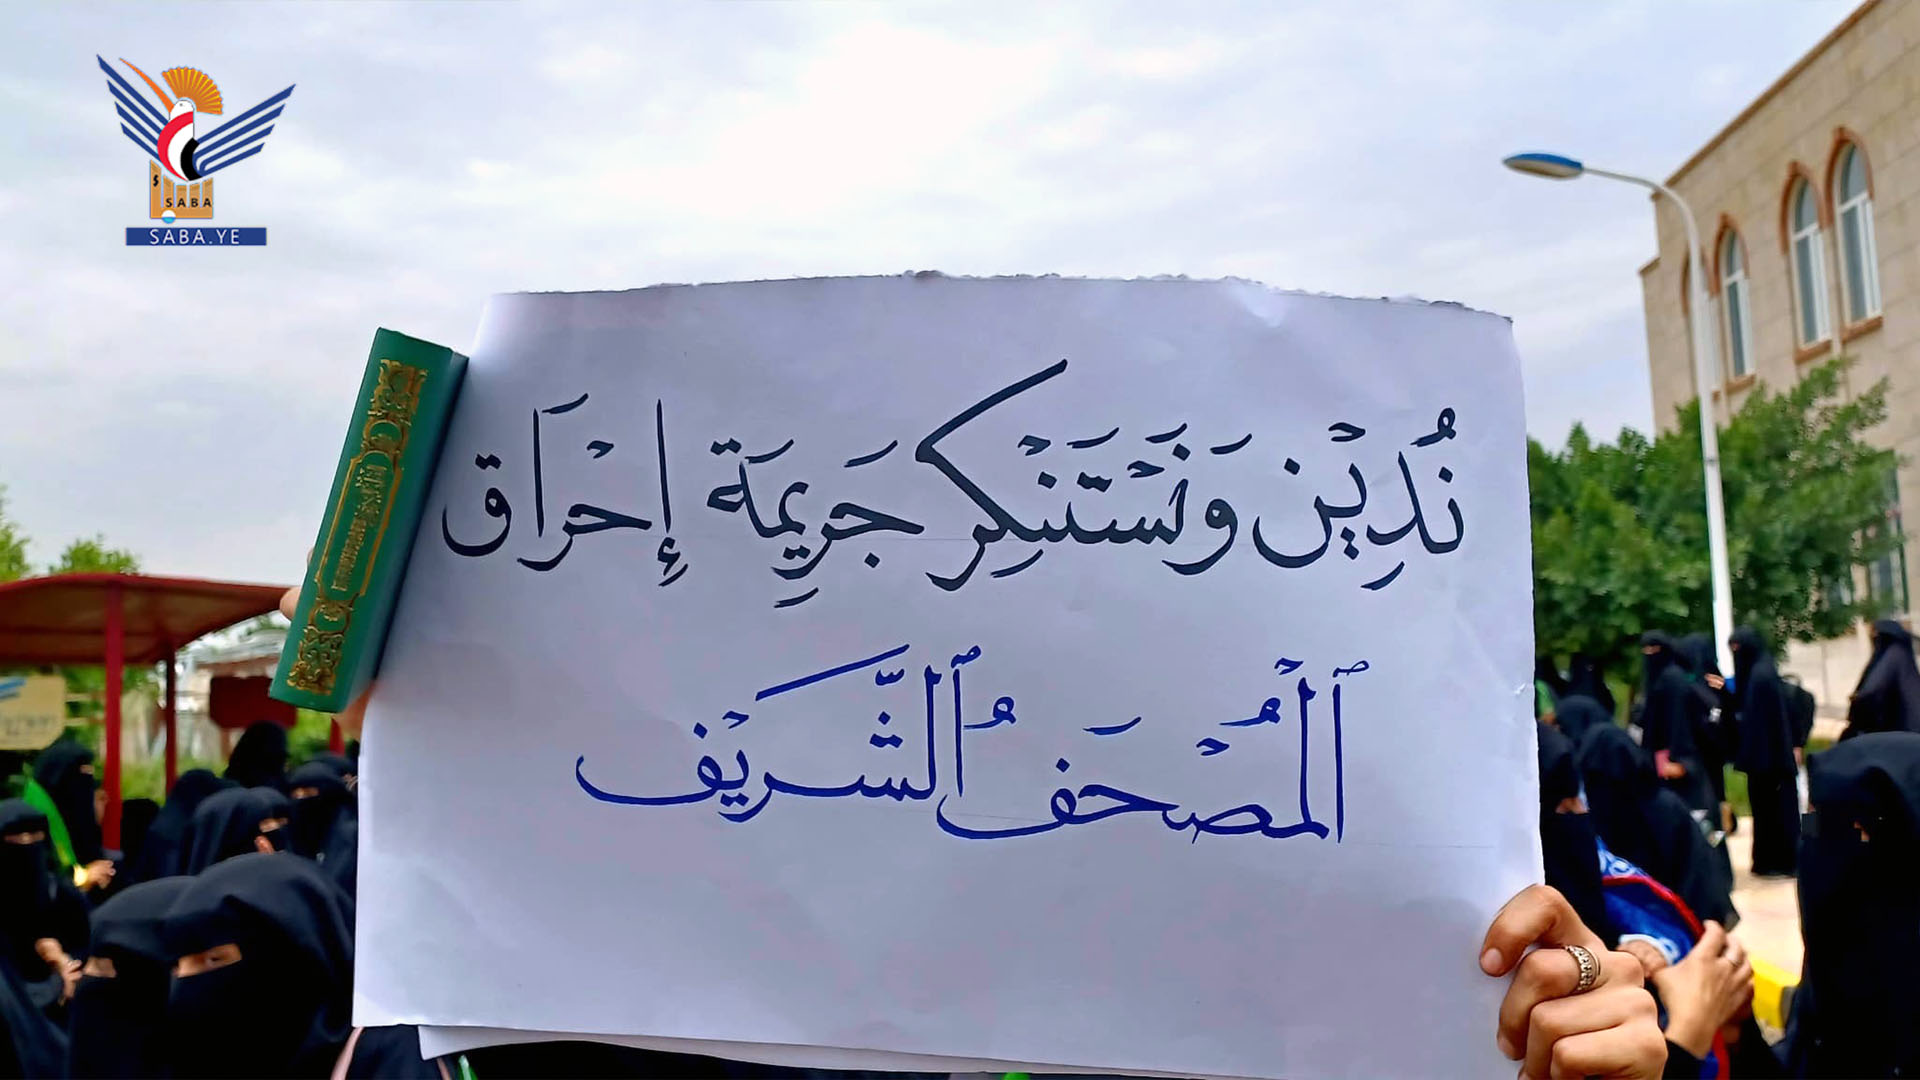 SABA
SABA.YE
نُدِيْن وَنَسْتَنْكِر جَرِيمَة إِحْرَاق
ٱلْمُصْحَفُ ٱلشَّرِيْف